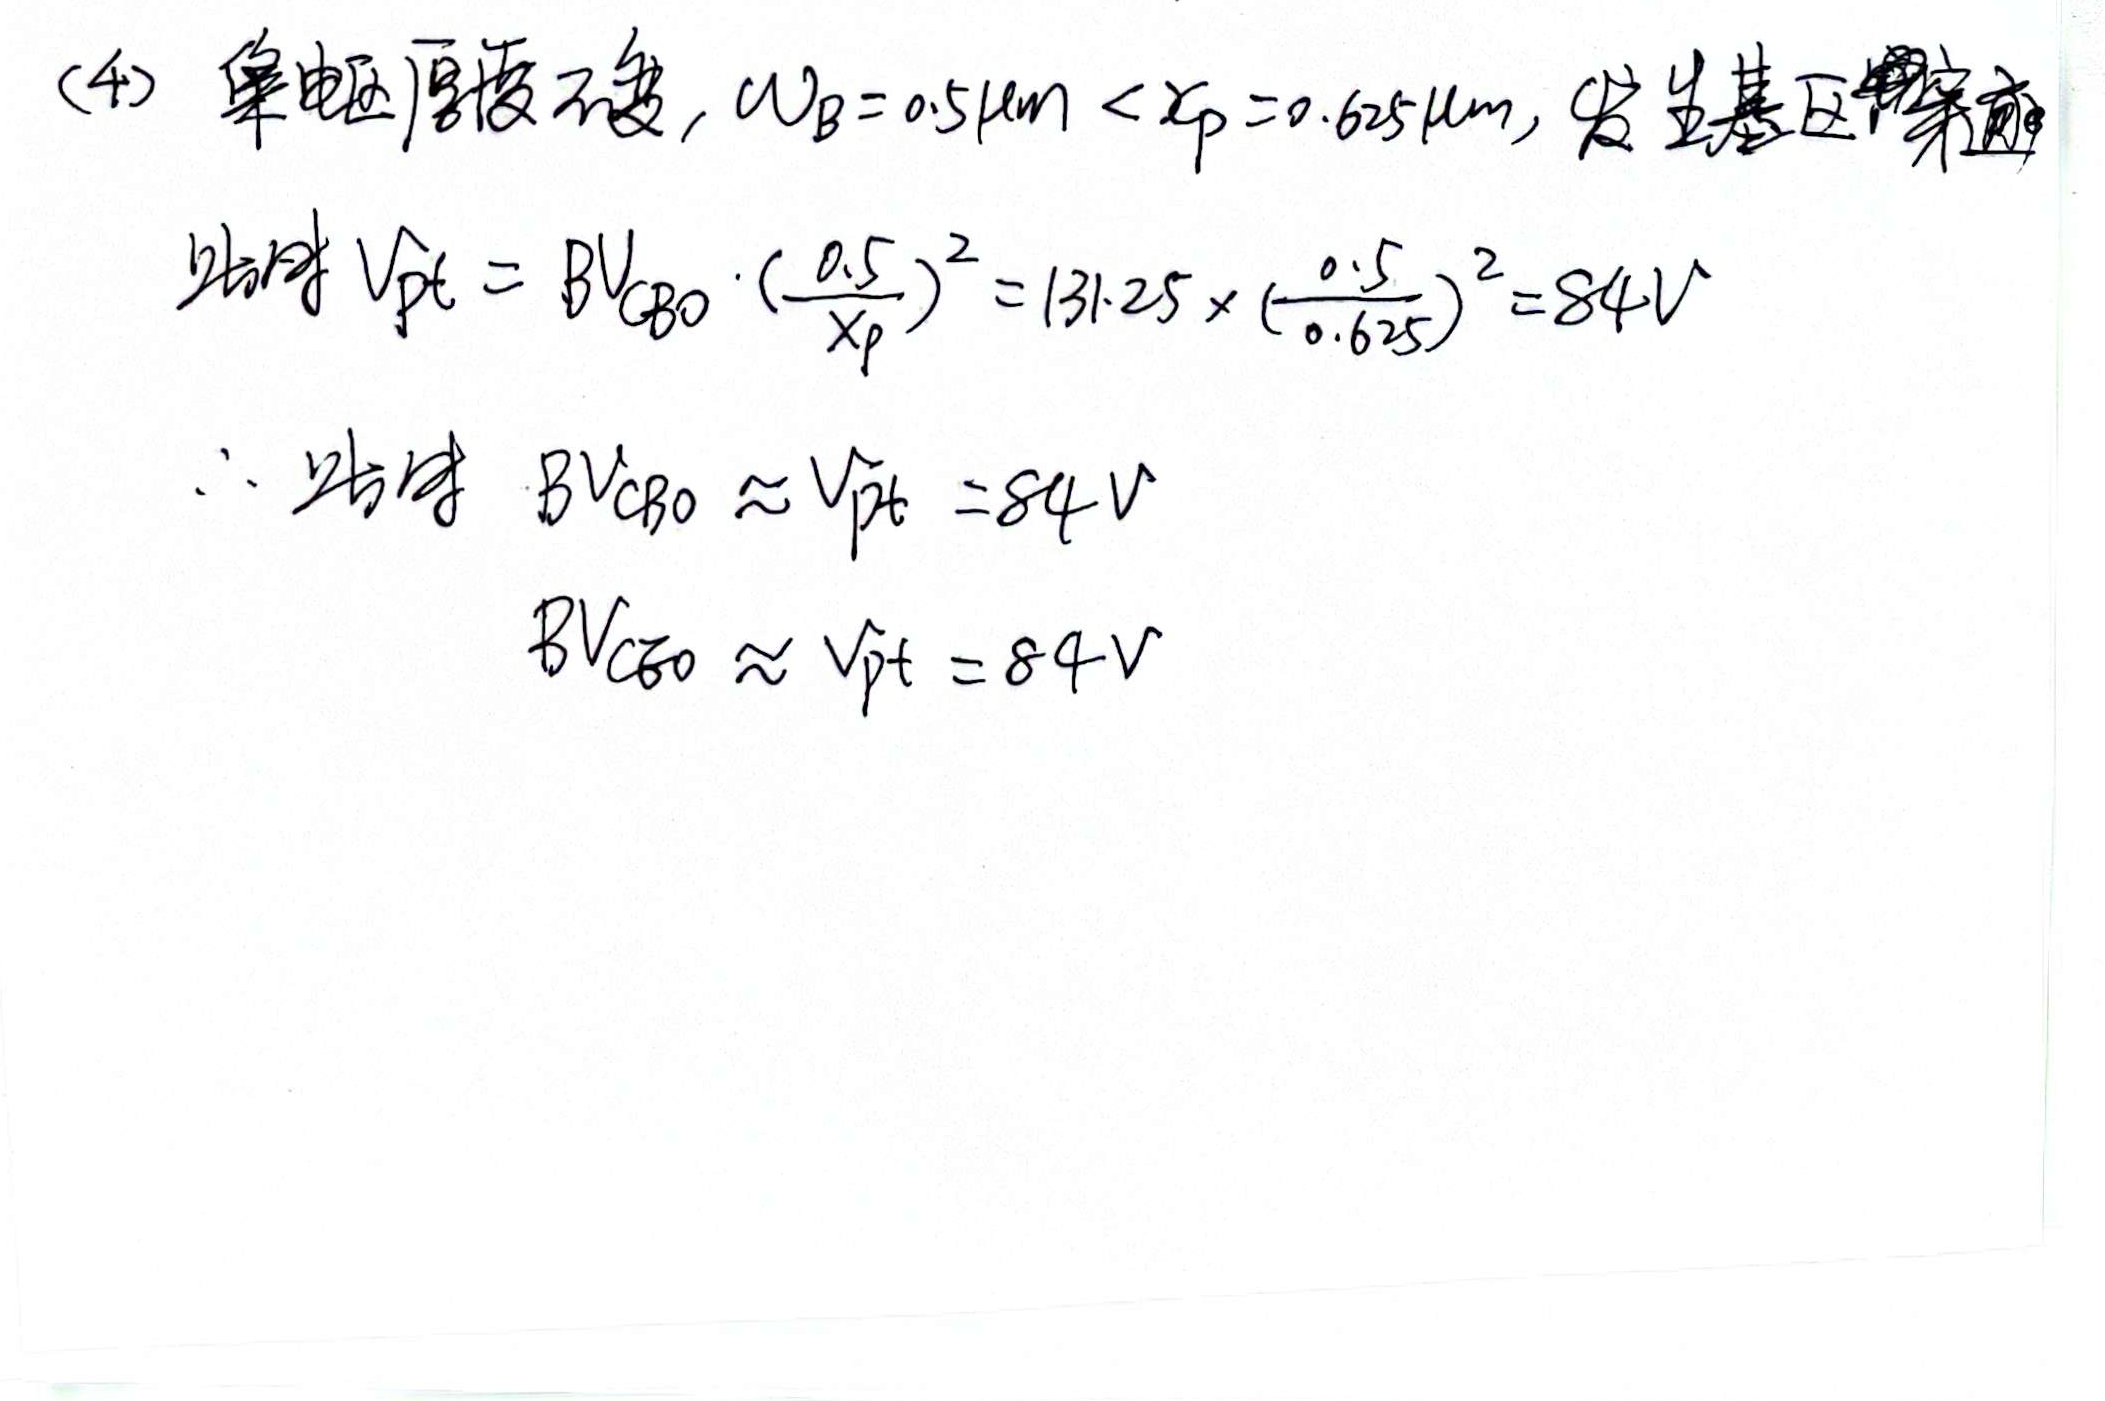 (4) 集电区厚度不变, W_B = 0.5μm < x_p = 0.625μm, 发生基区穿通
此时 V_pt = BV_CBO · (0.5/x_p)^2 = 131.25 × (0.5/0.625)^2 = 84V
∴ 此时 BV_CBO ≈ V_pt = 84V
BV_CEO ≈ V_pt = 84V